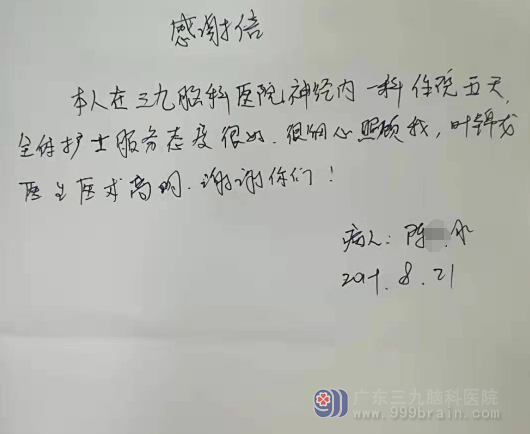 感谢信
本人在三九脑科医院神经内一科住院五天,
全体护士服务态度很好.很细心照顾我,叶锦龙
医生医术高明.谢谢你们!
病人:陈
8.21
广东三九脑科医院
www.999brain.com